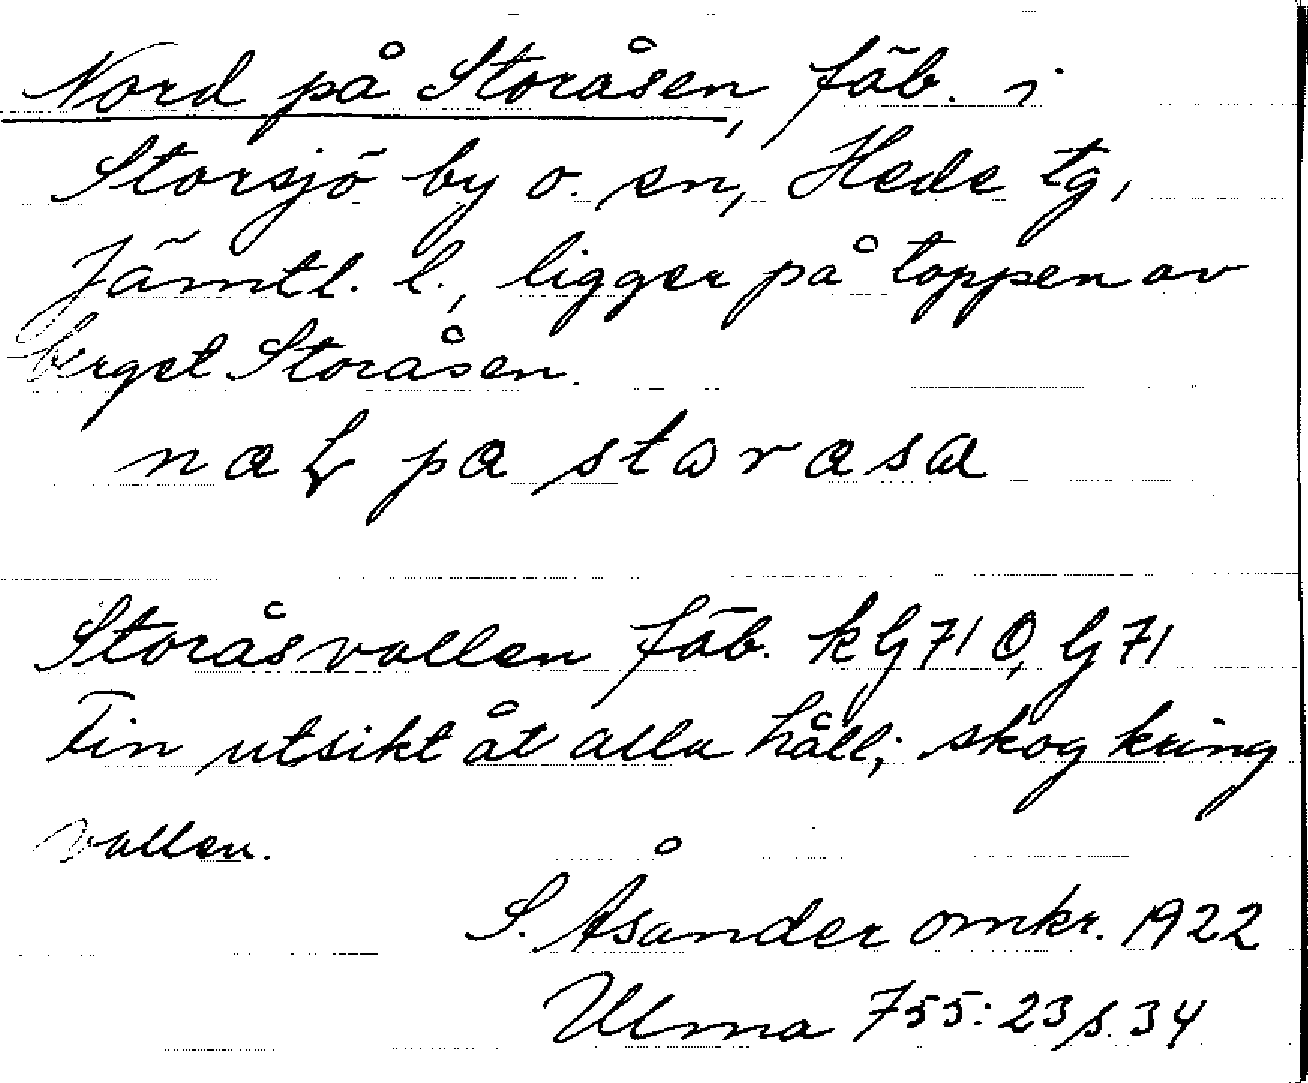 Nord på Storåsen, fäb. i
Storsjö by o. sn, Hede tg,
Jämtl. l., ligger på toppen av
berget Storåsen.
pa storasa
Storåsvallen fäb. kG71Ö, G71
Fin utsikt åt alla håll; skog kring
vallen.
S. Åsander omkr. 1922
Ulma 755:23 s. 34